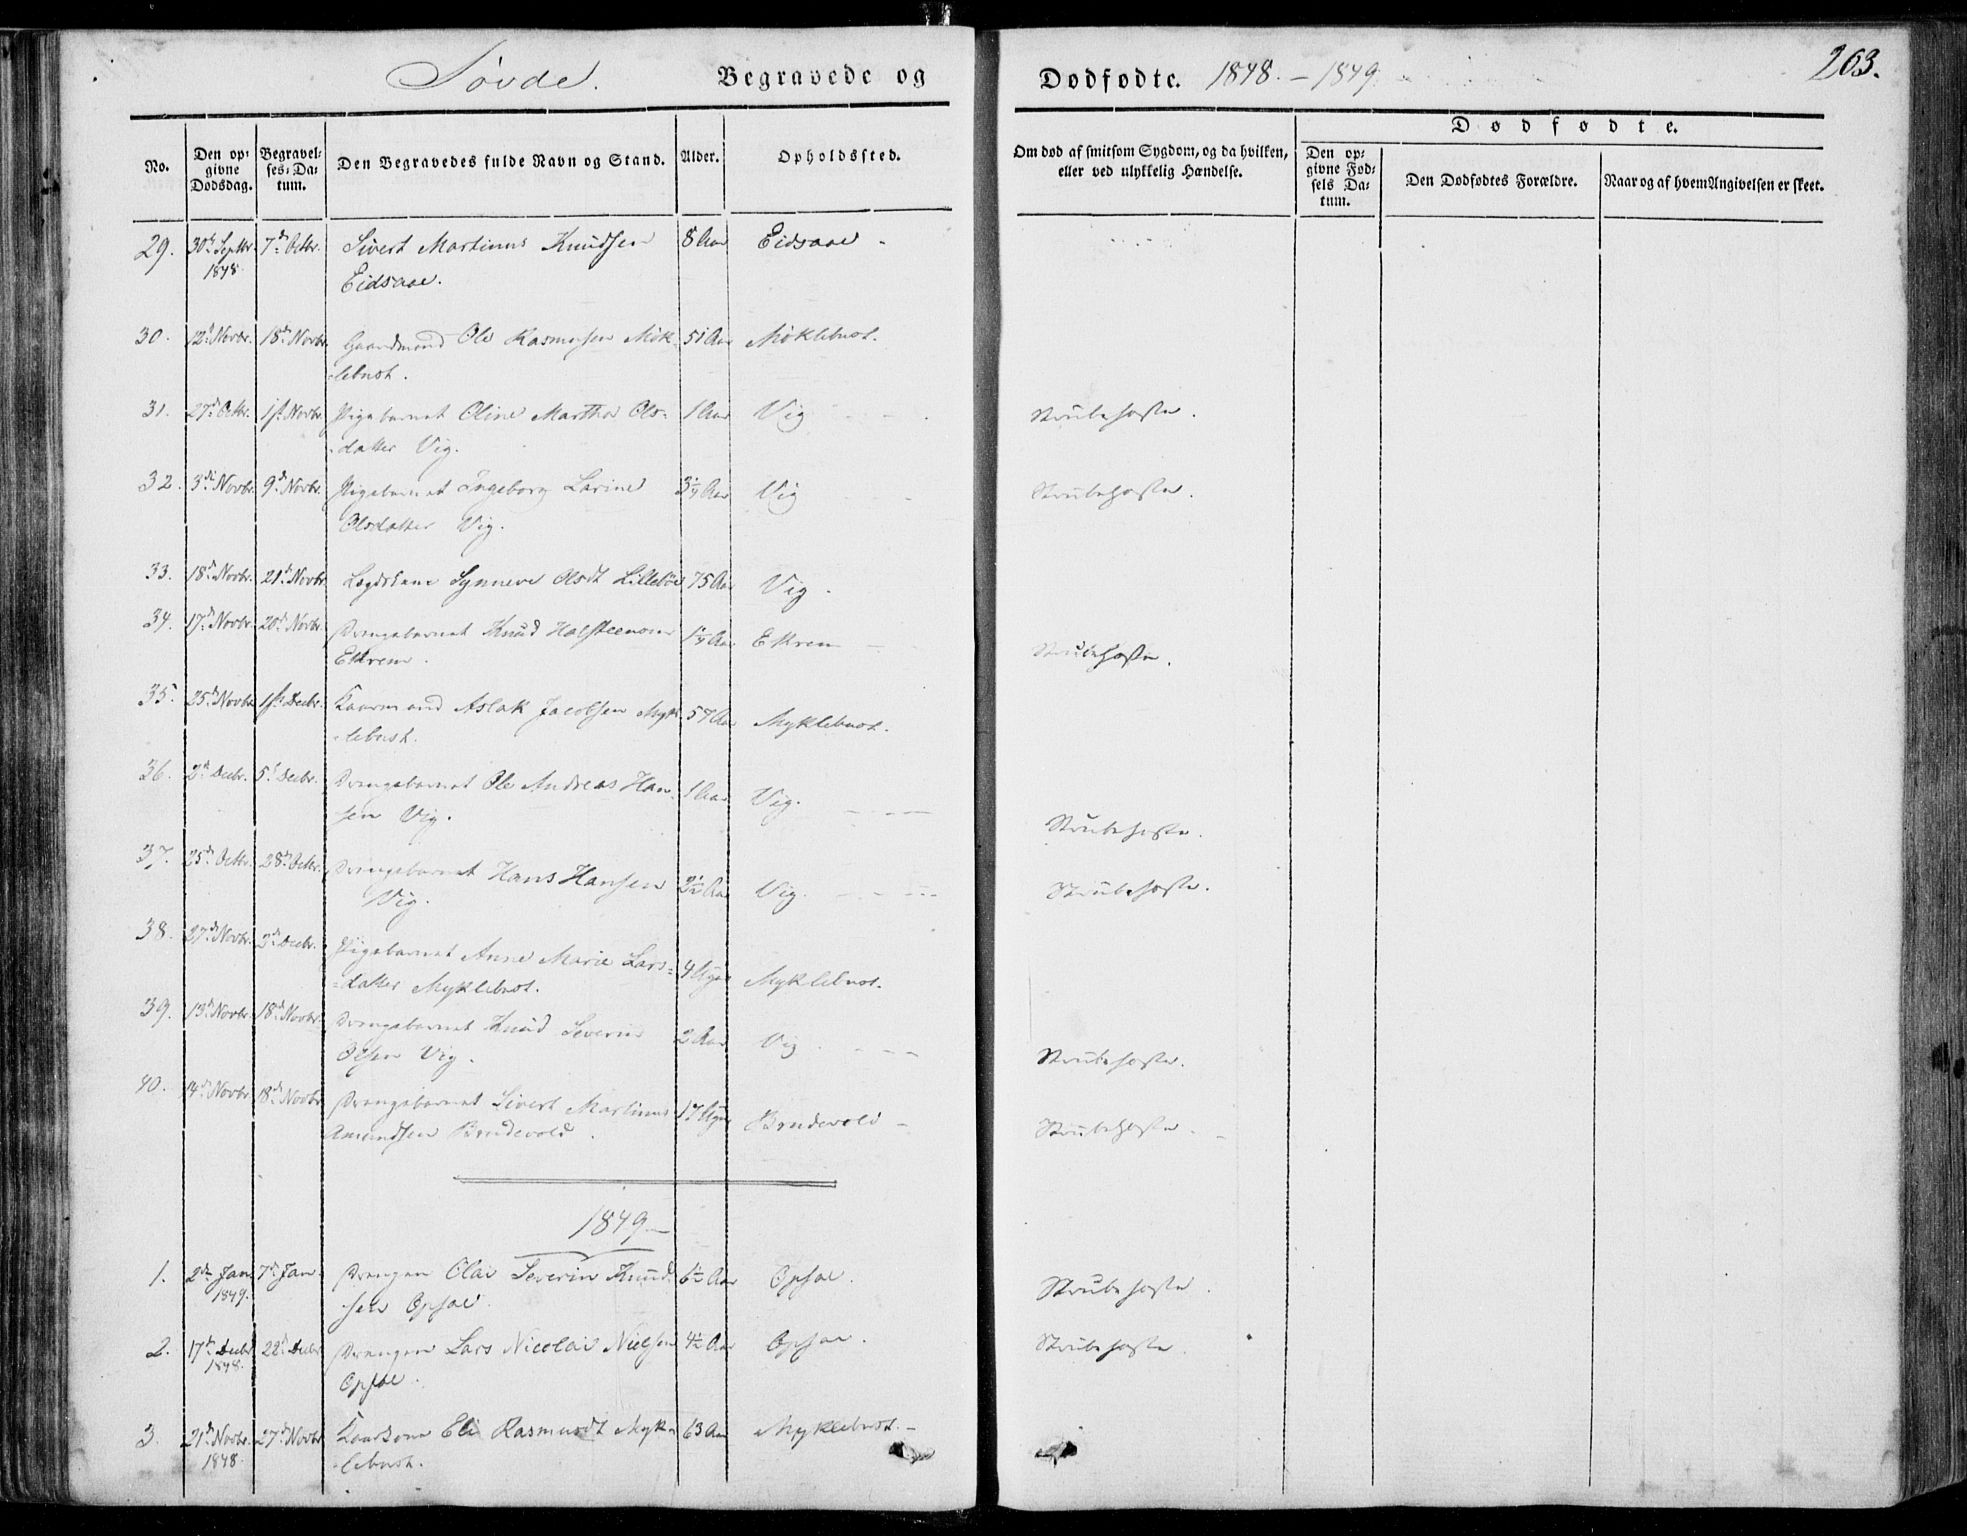 Søvde. Begravede og Dødfødte. 1848. – 1849. 263.
Dødfødte.
No. Den opgivne Dødsdag. Begravelses-Datum. Den Begravedes fulde Navn og Stand. Alder. Opholdssted. Om død af smitsom Sygdom, og da hvilken, eller ved ulykkelig Hændelse. Den opgivne Fødsels Datum. Den Dødfødtes Forældre. Naar og af hvem Angivelsen er skeet.
29. 30te Septbr. 7de Octbr. Sivert Martinus Knudsen 8 Aar Eidsaae -
1848 Eidsaae.
30. 12te Novbr. 18de Novbr. Gaardmand Ole Rasmusen Møk- 51 Aar Møklebust.
-lebust.
31. 27de Octbr. 1ste Novbr. Pigebarnet Oline Martha Ols- 1 Aar Vig Strubehoste.
-datter Vig.
32. 3die Novbr. 9de Novbr. Pigebarnet Ingeborg Larine Aar Vig Strubehoste.
Olsdatter Vig.
33. 18de Novbr. 21de Novbr. Lægdskone Synneve Olsdt Lillebøe 75 Aar Vig.
34. 17de Novbr. 20de Novbr. Drengebarnet Knud Halsteensen Aar Ekrem Strubehoste.
Ekrem.
35. 25de Novbr. 1ste Decbr. Kaarmand Aslak Jacobsen Myk- 57 Aar Myklebust.
-lebust.
36. 2den Decbr. 5te Decbr. Drengebarnet Ole Andreas Han- 1 Aar Vig. Strubehoste.
sen Vig.
37. 25de Octbr. 28de Octbr. Drengebarnet Hans Hansen 2½ Aar Vig. Strubehoste.
Vig.
38. 27de Novbr. 2den Decbr. Pigebarnet Anne Marie Lars- 4 Uger Myklebust.
-datter Myklebust.
39. 13de Novbr. 18de Novbr. Drengebarnet Knud Severin 2 Aar Vig. Strubehoste.
Olsen Vig.
40. 14de Novbr. 18de Novbr. Drengebarnet Sivert Martinus 17 Uger Brudevold - Strubehoste.
Amundsen Brudevold.
1849.
1. 2den Jan 7de Jan Drengen Olai Severin Knud- 6½ Aar Opsae. Strubehoste.
1849. -sen Opsae.
2. 17de Decbr 22de Decbr Drengen Lars Nicolai Nielsen 4½ Aar Opsae. Strubehoste.
1848. Opsae.
3. 21de Novbr. 27de Novbr Kaarkone Eli Rasmusdt Myk- 63 Aar Myklebust. -
1848. -lebust.